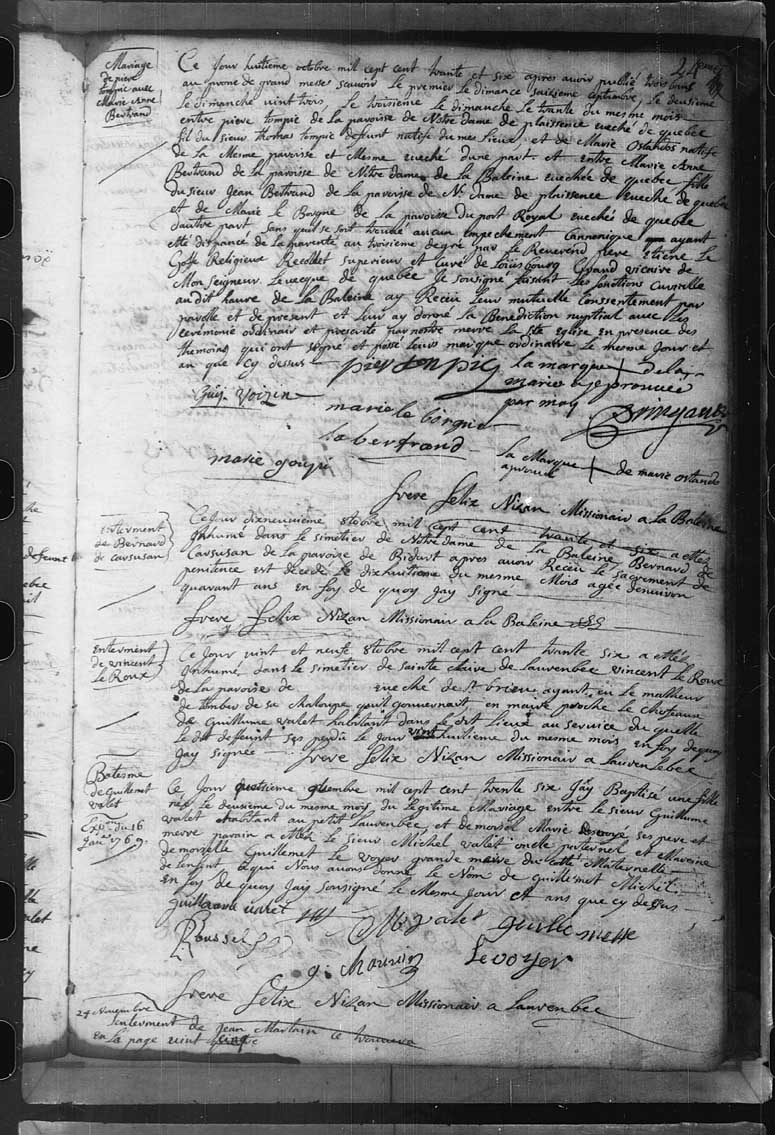 Mariage
de piere
tompic avec
Marie Anne
Bertrand
Ce Jour huitieme octobre mil cept cent trante et six apres avoir publié trois bans
au prone de grand messe scavoir le premier le dimance saizieme septembre, le deusieme
le dimanche vint trois, le troisieme le dimanche le trante du mesme mois
entre piere tompic de la paroisse de Notre dame de plaissence eveché de quebec
fil du sieur thomas tompic deffunt natife du mes Lieux, et de Marie Ostandos natife
de la Mesme paroisse et Mesme eveché dune part. et entre Marie Anne
Bertrand de la paroise de Nôtre dame de la Baleine eveché de quebec fille
du sieur Jean Bertrand de la paroisse de N. dame de plaissence eveché de quebec
et de Marie le Borgne de la paroisse du port Royal eveché de quebec
dautre part, sans quil se soit trouvé aucun Empechement Cannonique ayant
eté dispancé de la parenté au troisieme degré par le Reverend frere Etiene le
Goff Religieux Recollet superieur et curé de Loüisbourg Grand vicaire de
Mon seigneur Levecque de quebec Je soussigné faisant les fonctions Curialle
audit havre de la Baleine ay Receu leur mutuelle Consentement par
parolle et de present et leur ay donné la Benediction nuptial avec les
ceremonie ordinair et prescrite par nostre merre la Ste Eglise en presence des
themoins qui ont signé et possé leurs marque ordinaire le mesme Jour et
an que cy dessus
la marque + de la
mariee aprouvée
par moy
Guy Voizin
marie le borgne
la bertrand
la Marque + de marie ostando
aprouvé
frere felix Nizan Missionair a la Baleine
Enterment
de Bernard
de Carsusan
Ce Jour dixneuvieme 8tobre mil cept cent trante et six a etté
Inhumé dans le simetier de Notre dame de la Baleine Bernard de
Carsusan de la paroise de Bidart apres avoir Receu le sacrement de
penitence est decedé le dixhuitieme du mesme Mois agée denviron
quarant ans en foy de quoy Jay signé
frere felix Nizan Missionair a la Baleine
Enterment
de vincent
le Roux
Ce Jour vint et neufe 8tobre mil cept cent trante six a etté
Inhumé dans le simetier de sainte claire de Laurenbec vincent le Roux
de la paroise de eveché de st brieu ayant eu le malheur
de tomber de sa chaloupe quil gouvernoit en
de Guillume valet habitant dans le dit Lieux au service du quelle
le dit deffeunt ses perdu le Jour vint huitieme du mesme mois en foy de quoy
Jay signée frere felix Nizan Missionair a Laurenbec
Batesme
de Guillemet
valet
Expon du 16
Janr 1769
Ce Jour quatrieme mil cept cent trante six Jay Baptisé une fille
née le deusieme du mesme mois, du legitime Mariage entre le sieur Guillume
valet habitant au petit Laurenbec et demoisel Marie ses pere et
merre parain a etté le sieur Michel valet oncle paternel et Mareine
demoiselle Guillemet le voyer grande mere du cotté Maternelle
de lenfant, a qui Nous avons donné le Nom de Guillemet Michel
En foy de quoy Jay sousigné le Mesme Jour et ans que cy dessus
M valet
Guillemette
Levoyer
Roussel
frere felix Nizan Missionair a Laurenbec
24 Novembre
Lenterment de Jean Martain ce trouvera
en la page vint